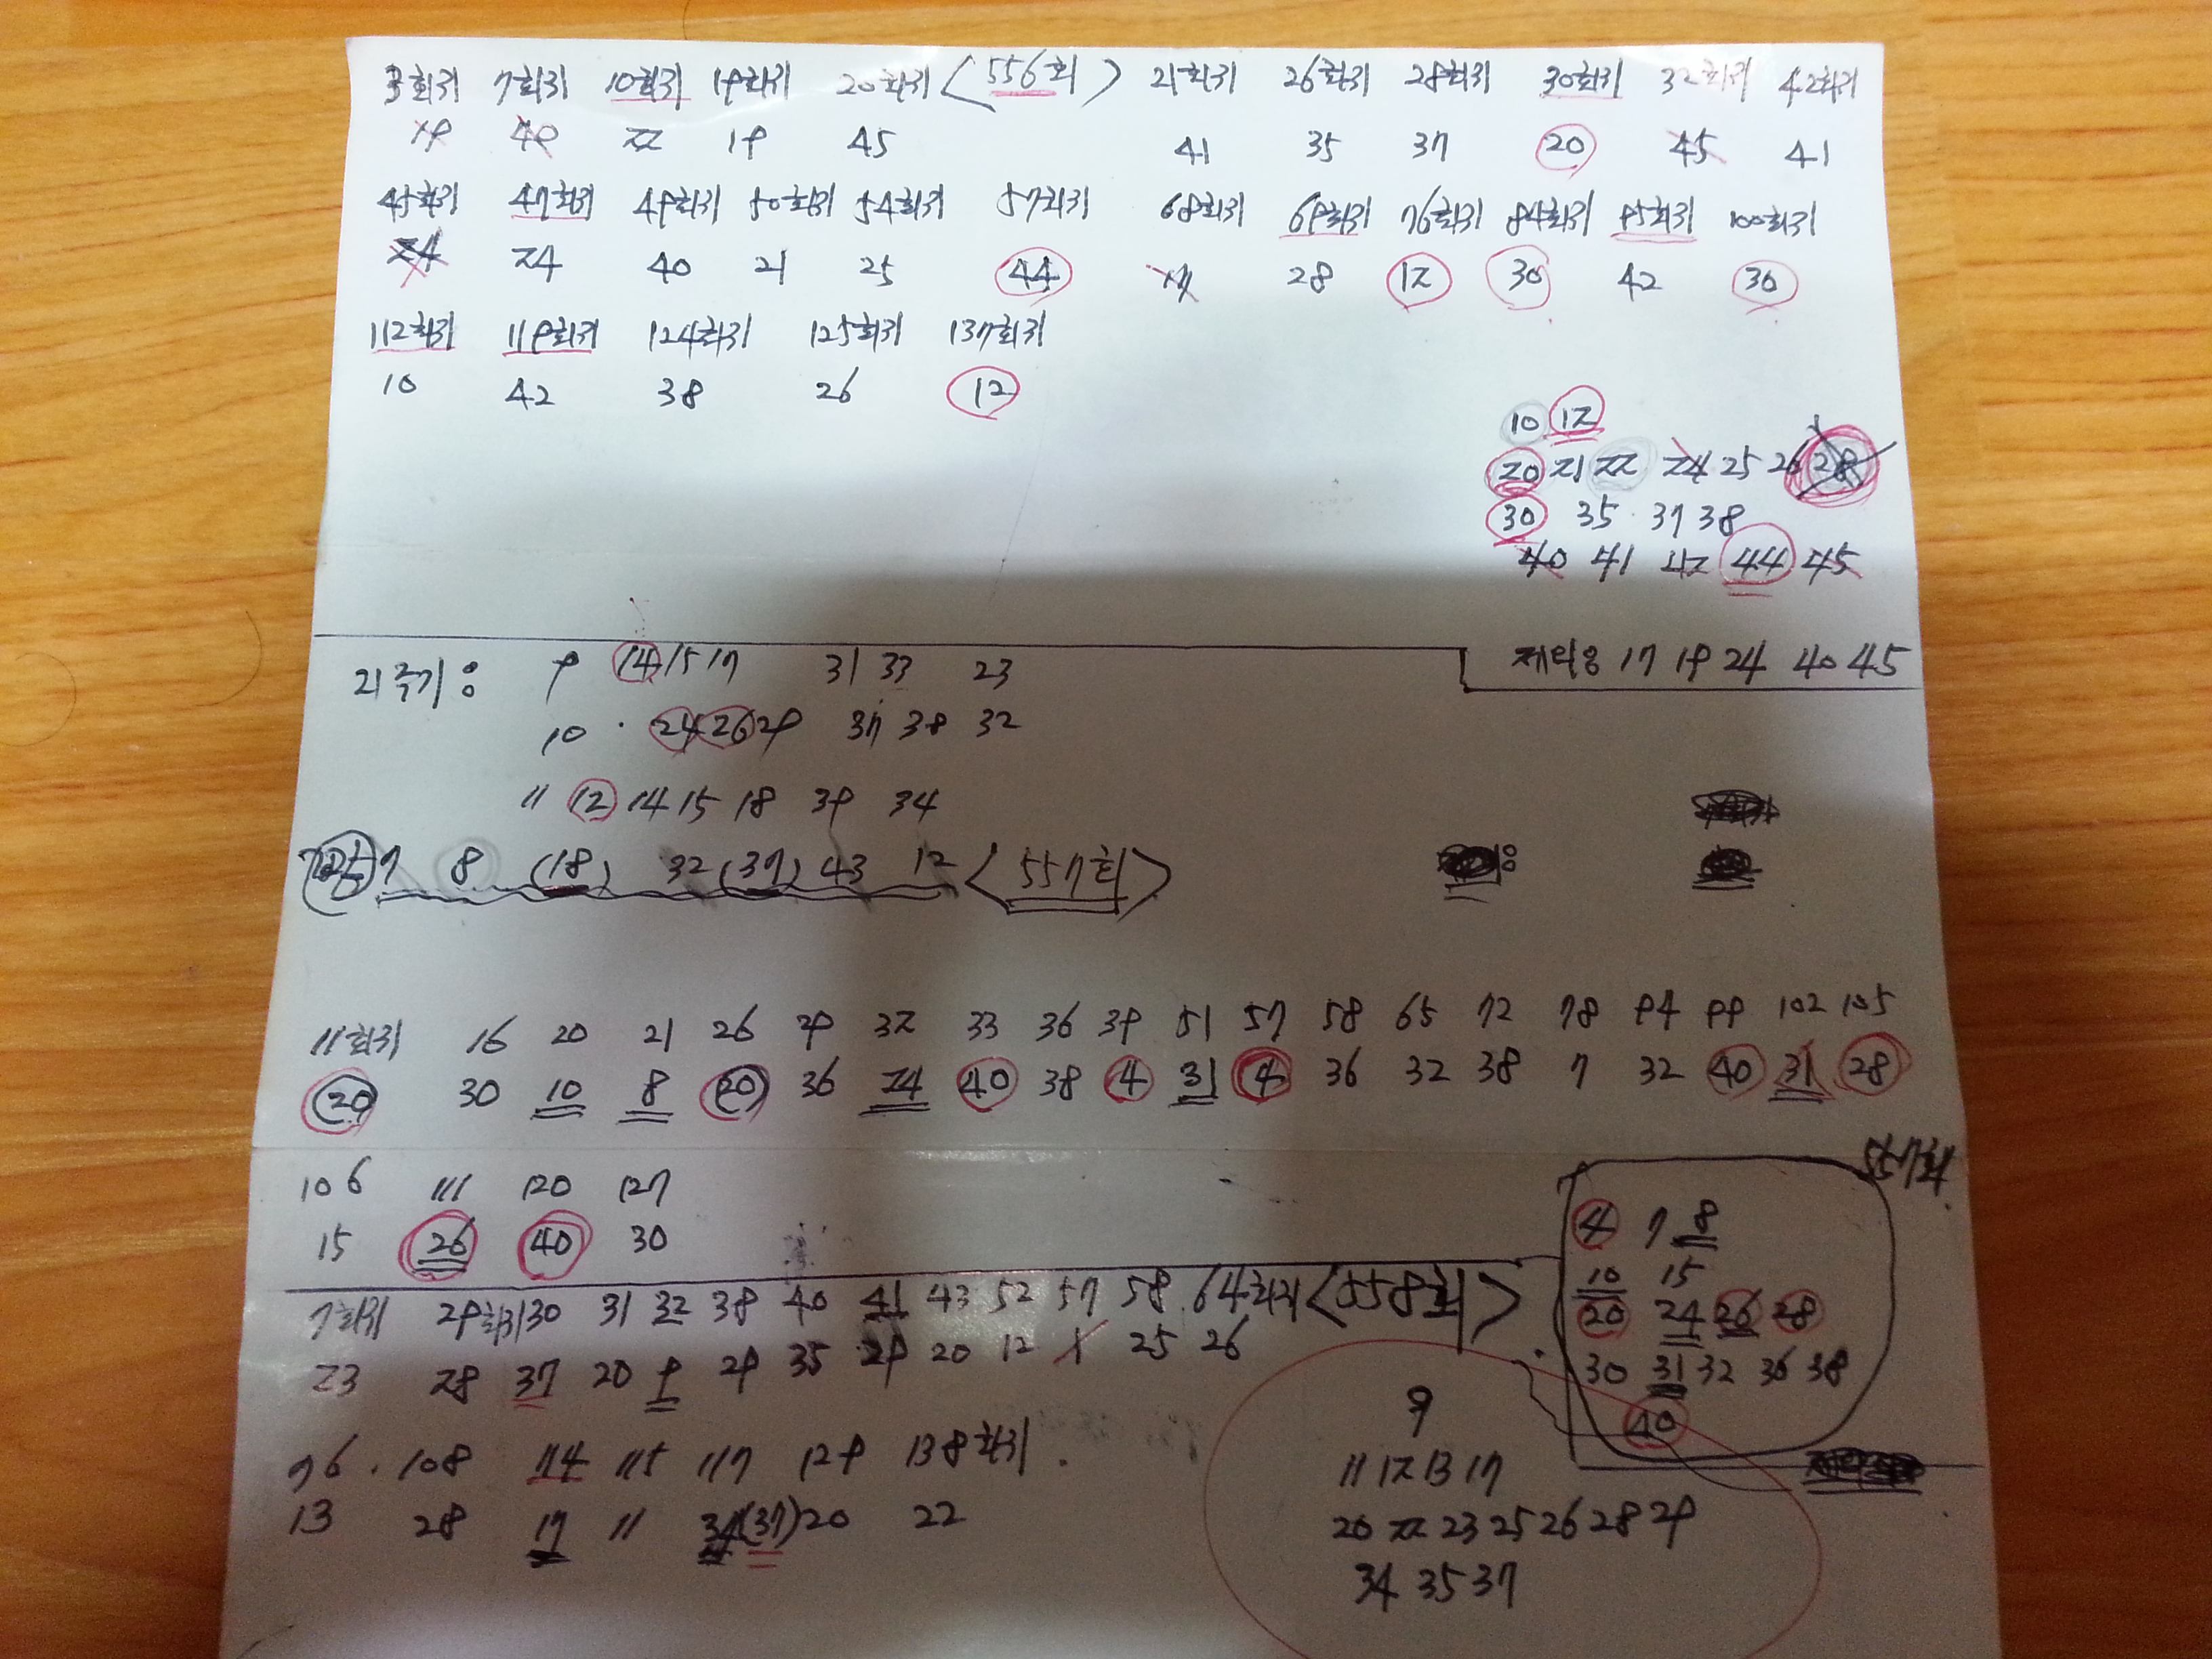 3회귀 7회귀 10회귀 19회귀 20회귀 <556회> 21회귀 26회귀 28회귀 30회귀 32회귀 42회귀
19 40 22 19 45 41 35 37 20 45 41
45회귀 47회귀 49회귀 50회귀 54회귀 57회귀 68회귀 69회귀 76회귀 84회귀 95회귀 100회귀
24 24 40 21 25 44 28 12 30 42 30
112회귀 119회귀 124회귀 125회귀 137회귀
10 42 38 26 12
10 12
20 21 22 24 25 26 28
30 35 37 38
40 41 42 44 45
제외수 17 19 24 40 45
21주기: 9 14 15 17 31 33 23
10 24 26 29 37 38 32
11 12 14 15 18 39 34
7 8 (18) 32 (37) 43 12 <557회>
11회귀 16 20 21 26 29 32 33 36 39 51 57 58 65 72 78 94 99 102 105
20 30 10 8 20 36 24 40 38 4 31 4 36 32 38 7 32 40 31 28
106 111 120 127
15 26 40 30
557회
4 7 8
10 15
20 24 26 28
30 31 32 36 38
40
7회귀 29회귀 30 31 32 38 40 41 43 52 57 58 64회귀 <558회>
23 28 37 20 9 29 35 29 20 12 1 25 26
96 108 114 115 117 129 138회귀
13 28 17 11 34 (37) 20 22
9
11 12 13 17
20 22 23 25 26 28 29
34 35 37